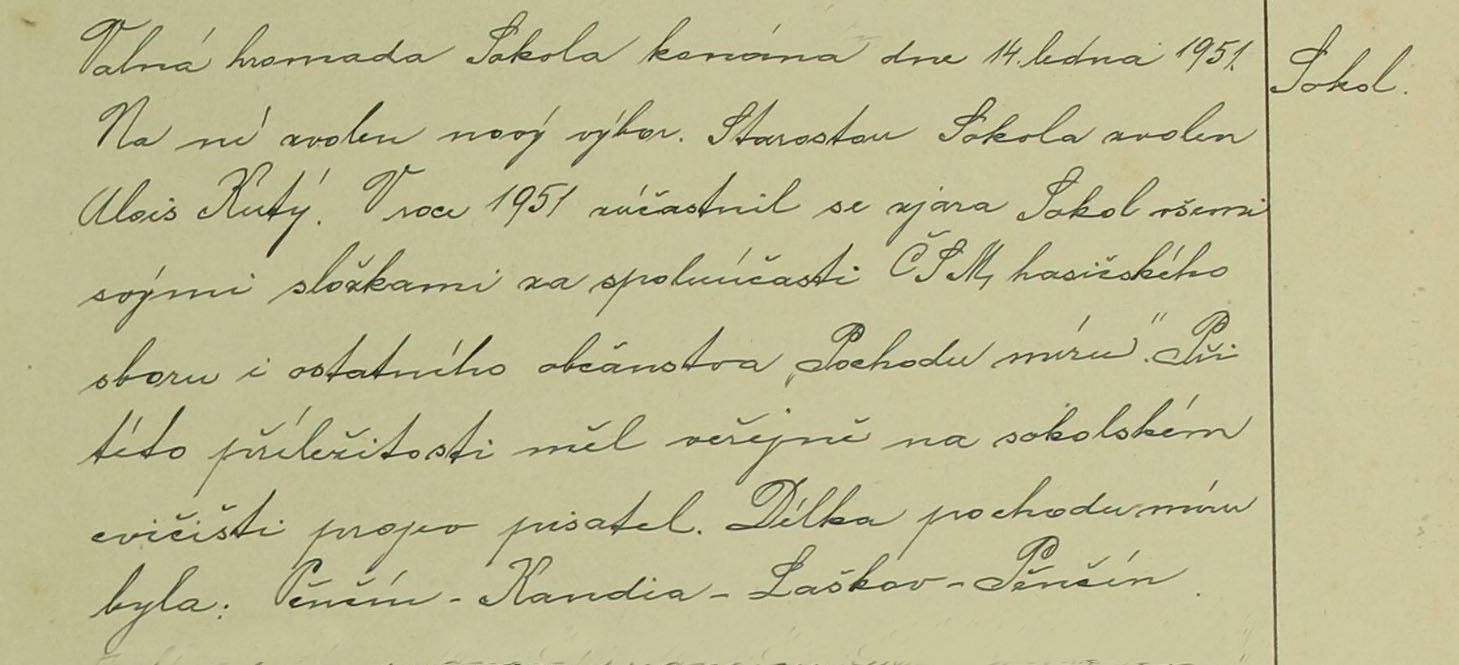 Valná hromada Sokola konána dne 14. ledna 1951.
Sokol.
Na ní zvolen nový výbor. Starostou Sokola zvolen
Alois Kutý. V roce 1951 zúčastnil se zjara Sokol všemi
svými složkami za spoluúčasti ČSM, hasičského
sboru i ostatního občanstva „Pochodu míru". Při
této příležitosti měl veřejně na sokolském
cvičišti projev pisatel. Délka pochodu míru
byla: Pěnčín - Kandia - Laškov - Pěnčín.